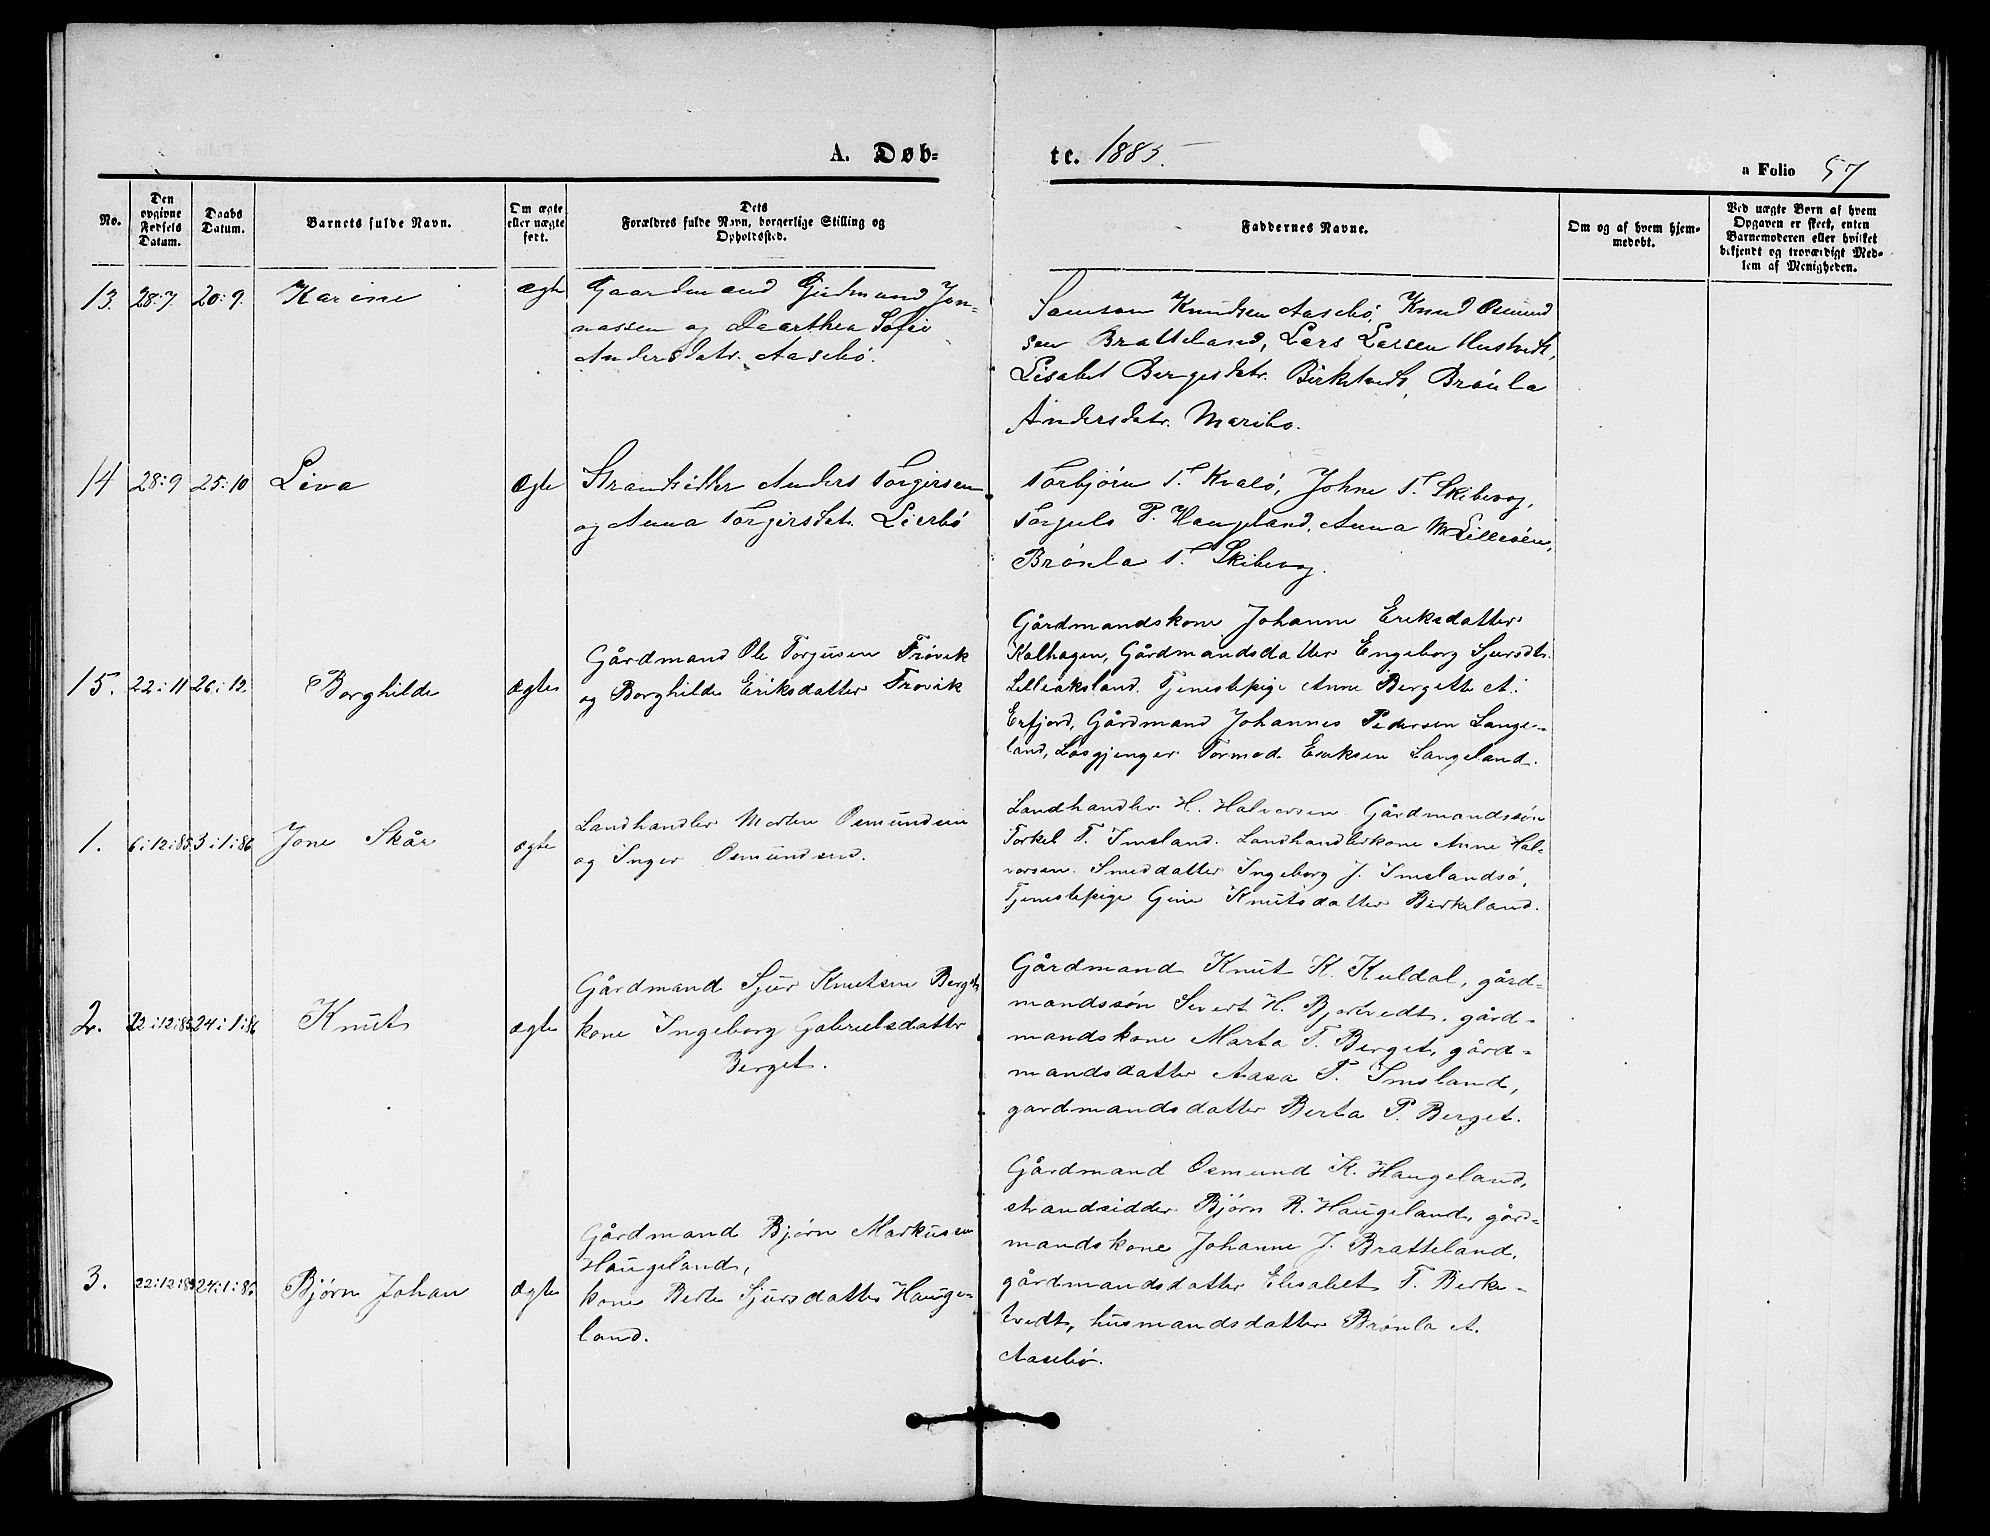 A. Døb-
te. 1885.
a Folio 57
No.
Den opgivne Fødsels Datum.
Daabs Datum.
Barnets fulde Navn.
Om ægte eller uægte født.
Dets Forældres fulde Navn, borgerlige Stilling og Opholdssted.
Faddernes Navne.
Om og af hvem hjem- medøbt.
Ved uægte Børn af hvem Opgaven er skeet, enten Barnemoderen eller hvilket bekjendt og troværdigt Med- lem af Menigheden.
13. 28:7 20:9. Karine ægte
Gaardmand Gudmund Jon-
nassen og Daarthea Sofie
Andersdatr. Aasebø.
Samson Knudsen Aasebø, Knud Osmund
sen Bratteland, Lars Larsen Hustvedt,
Lisabet Bergesdatr. Birketvedt, Brønla
Andersdatr. Maribo.
14 28:9 25:10 Liva Ægte
Strandsidder Anders Torgirsen
og Anna Torgirsdatr. Lierbø
Torbjørn T. Kvalø, Johne T. Skibevog,
Torguls P. Haugland, Anna M Lilleøen,
Brønla T. Skibevog.
15. 22:11 26:12. Borghilde Ægte
Gårdmand Ole Torjusen Trøvik
og Borghilde Eriksdatter Trøvik
Gårdmandskone Johanne Eriksdatter
Kalhagen, Gårdmandsdatter Engeborg Sjursdtr.
Lilleaksland. Tjenestepige Anne Bergette A.
Erfjord, Gårdmand Johannes Pedersen Lange-
land, Løsgjenger Tormod Eriksen Langeland.
1. 6:12:85 3:1:86 Jone Skår ægte
Landhandler Morten Osmundsen
og Inger Osmundsen.
Landhandler H. Halvorsen. Gårdmandssøn
Torkel T. Imsland. Landhandlerkone Anne Hal-
vorsen. Smeddatter Ingeborg J. Imslandsø,
Tjenestepige Gine Knutsdatter Birkeland.
2. 12:12:85 24:1:86 Knut ægte
Gårdmand Sjur Knutsen Berget
kone Ingeborg Gabrielsdatter
Berget.
Gårdmand Knut K. Kuldal, gård-
mandssøn Sivert H. Bjortvedt, gård-
mandskone Marta T. Berget, gård-
mandsdatter Aasa T. Imsland,
gardmandsdatter Berta P. Berget.
3. 22:12:85 24:1:86 Bjørn Johan ægte
Gårdmand Bjørn Markusen
Haugeland,
kone Berte Sjursdatter Hauge-
land.
Gårdmand Osmund K. Haugeland,
strandsidder Bjørn R. Haugeland, gård-
mandskone Johanne J. Bratteland,
gårdmandsdatter Elisabet T. Birke-
tvedt, husmandsdatter Brønla A.
Aasebø.